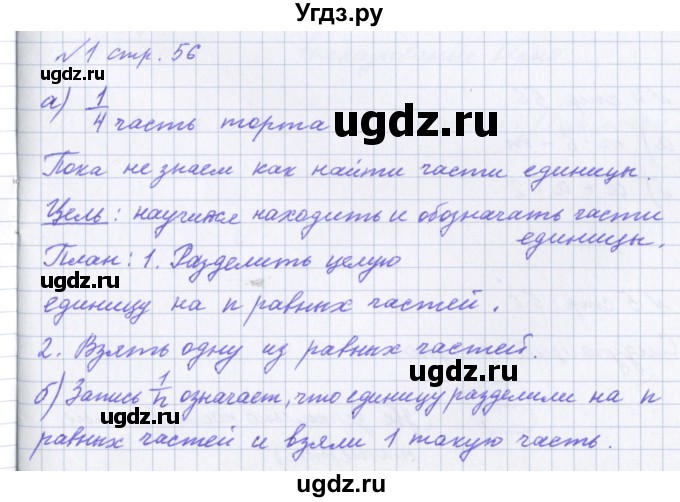 Угдз.ру
№1 стр. 56
а) 1/4 часть торта
ugdz.ru
ugdz.ru
Пока не знаем как найти части единицы.
Цель: научимся находить и обозначать части
единицы.
План: 1. Разделить целую
ugdz.ru
ugdz.ru
единицу на n равных частей.
2. Взять одну из равных частей.
ugdz.ru
б) Запись 1/n означает, что единицу разделили на n
равных частей и взяли 1 такую часть.
ugdz.ru
ugdz.ru
ugdz.ru